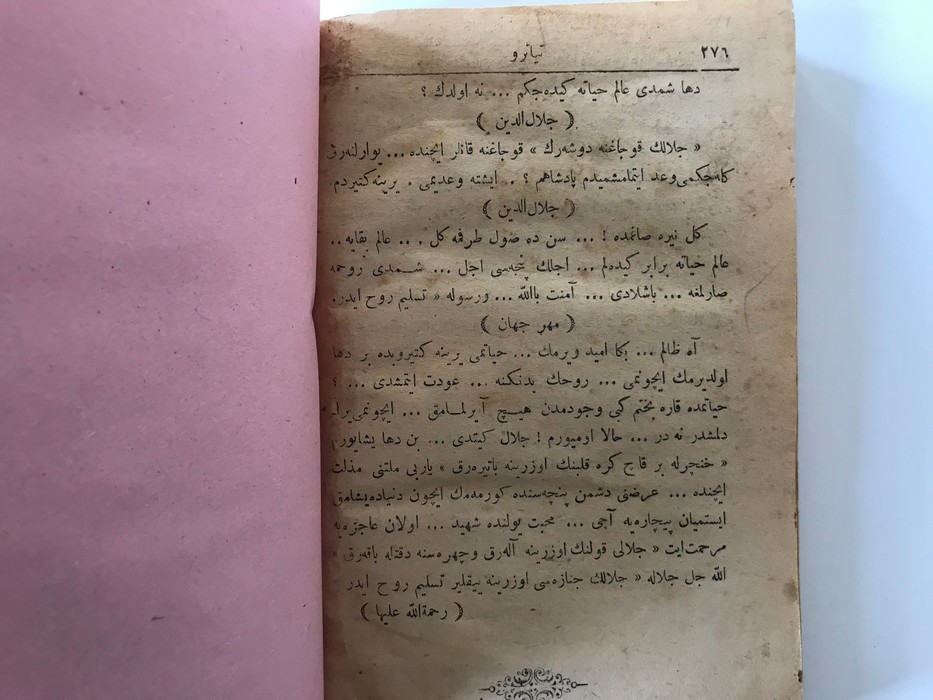 ٢٧٦ تياترو
دها شمدى عالم حياته كيده‌جكم ... نه اولدك ؟
﴿ جلال‌الدين ﴾
« جلالك قوجاغنه دوشه‌رك » قوجاغنه قانلر ايچنده ... يوارلنه‌رق
كله‌جكمى وعد ايتمامشميدم پادشاهم ؟ .. ايشته وعديمى . يرينه كتيردم.
﴿ جلال‌الدين ﴾
كل نيره صانمده ! ... سن ده صول طرفمه كل . .. عالم بقايه ..
عالم حياته برابر كيده‌لم ... اجلك پنجه‌سى اجل ... شــمدى روحمه
صارلمغه ... باشلادى ... آمنت بالله ... ورسوله « تسليم روح ايدر.
﴿ مهر جهان ﴾
آه ظالم ... بكا اميد ويرمك ... حياتمى يرينه كتيروبده بر دها
اولديرمك ايچونمى ... روحك بدنكنه ... عودت ايتمشدى ... ؟
حياتمده قاره بختم كبى وجودمدن هيــچ آيرلمــامق ... ايچونمى يرا‌
دلمشدر نه در ... حالا اوميورم ! جلال كيتدى ... بن دها يشايورم
« خنجرله بر قاچ كره قلبنك اوزرينه باتيره‌رق » ياربى ملتنى مذلت
ايچنده ... عرضنى دشمن پنجه‌سنده كورمه‌مك ايچون دنياده يشامق
ايستميان بيچاره‌يه آجى ... محبت يولنده شهيد ... اولان عاجزه‌يه
مرحمت ايت « جلالى قولنك اوزرينه آله‌رق وچهره‌سنه دقتله باقه‌رق »
الله جل جلاله « جلالك جنازه‌سى اوزرينه ييقلير تسليم روح ايدر
﴿ رحمة الله عليها ﴾